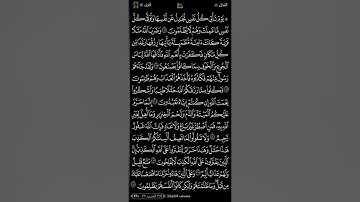 النحل
۞ يَوْمَ تَأْتِي كُلُّ نَفْسٍ تُجَادِلُ عَن نَّفْسِهَا وَتُوَفَّىٰ كُلُّ
نَفْسٍ مَّا عَمِلَتْ وَهُمْ لَا يُظْلَمُونَ وَضَرَبَ اللَّهُ مَثَلًا
قَرْيَةً كَانَتْ ءَامِنَةً مُّطْمَئِنَّةً يَأْتِيهَا رِزْقُهَا رَغَدًا مِّن
كُلِّ مَكَانٍ فَكَفَرَتْ بِأَنْعُمِ اللَّهِ فَأَذَاقَهَا اللَّهُ لِبَاسَ
الْجُوعِ وَالْخَوْفِ بِمَا كَانُوا يَصْنَعُونَ وَلَقَدْ جَاءَهُمْ
رَسُولٌ مِّنْهُمْ فَكَذَّبُوهُ فَأَخَذَهُمُ الْعَذَابُ وَهُمْ ظَالِمُونَ
فَكُلُوا مِمَّا رَزَقَكُمُ اللَّهُ حَلَالًا طَيِّبًا وَاشْكُرُوا
نِعْمَتَ اللَّهِ إِن كُنتُمْ إِيَّاهُ تَعْبُدُونَ إِنَّمَا حَرَّمَ
عَلَيْكُمُ الْمَيْتَةَ وَالدَّمَ وَلَحْمَ الْخِنزِيرِ وَمَا أُهِلَّ لِغَيْرِ
اللَّهِ بِهِ فَمَنِ اضْطُرَّ غَيْرَ بَاغٍ وَلَا عَادٍ فَإِنَّ اللَّهَ غَفُورٌ
رَّحِيمٌ وَلَا تَقُولُوا لِمَا تَصِفُ أَلْسِنَتُكُمُ الْكَذِبَ
هَٰذَا حَلَالٌ وَهَٰذَا حَرَامٌ لِّتَفْتَرُوا عَلَى اللَّهِ الْكَذِبَ إِنَّ
الَّذِينَ يَفْتَرُونَ عَلَى اللَّهِ الْكَذِبَ لَا يُفْلِحُونَ مَتَاعٌ قَلِيلٌ
وَلَهُمْ عَذَابٌ أَلِيمٌ وَعَلَى الَّذِينَ هَادُوا حَرَّمْنَا مَا قَصَصْنَا عَلَيْكَ
مِن قَبْلُ وَمَا ظَلَمْنَاهُمْ وَلَٰكِن كَانُوا أَنفُسَهُمْ يَظْلِمُونَ